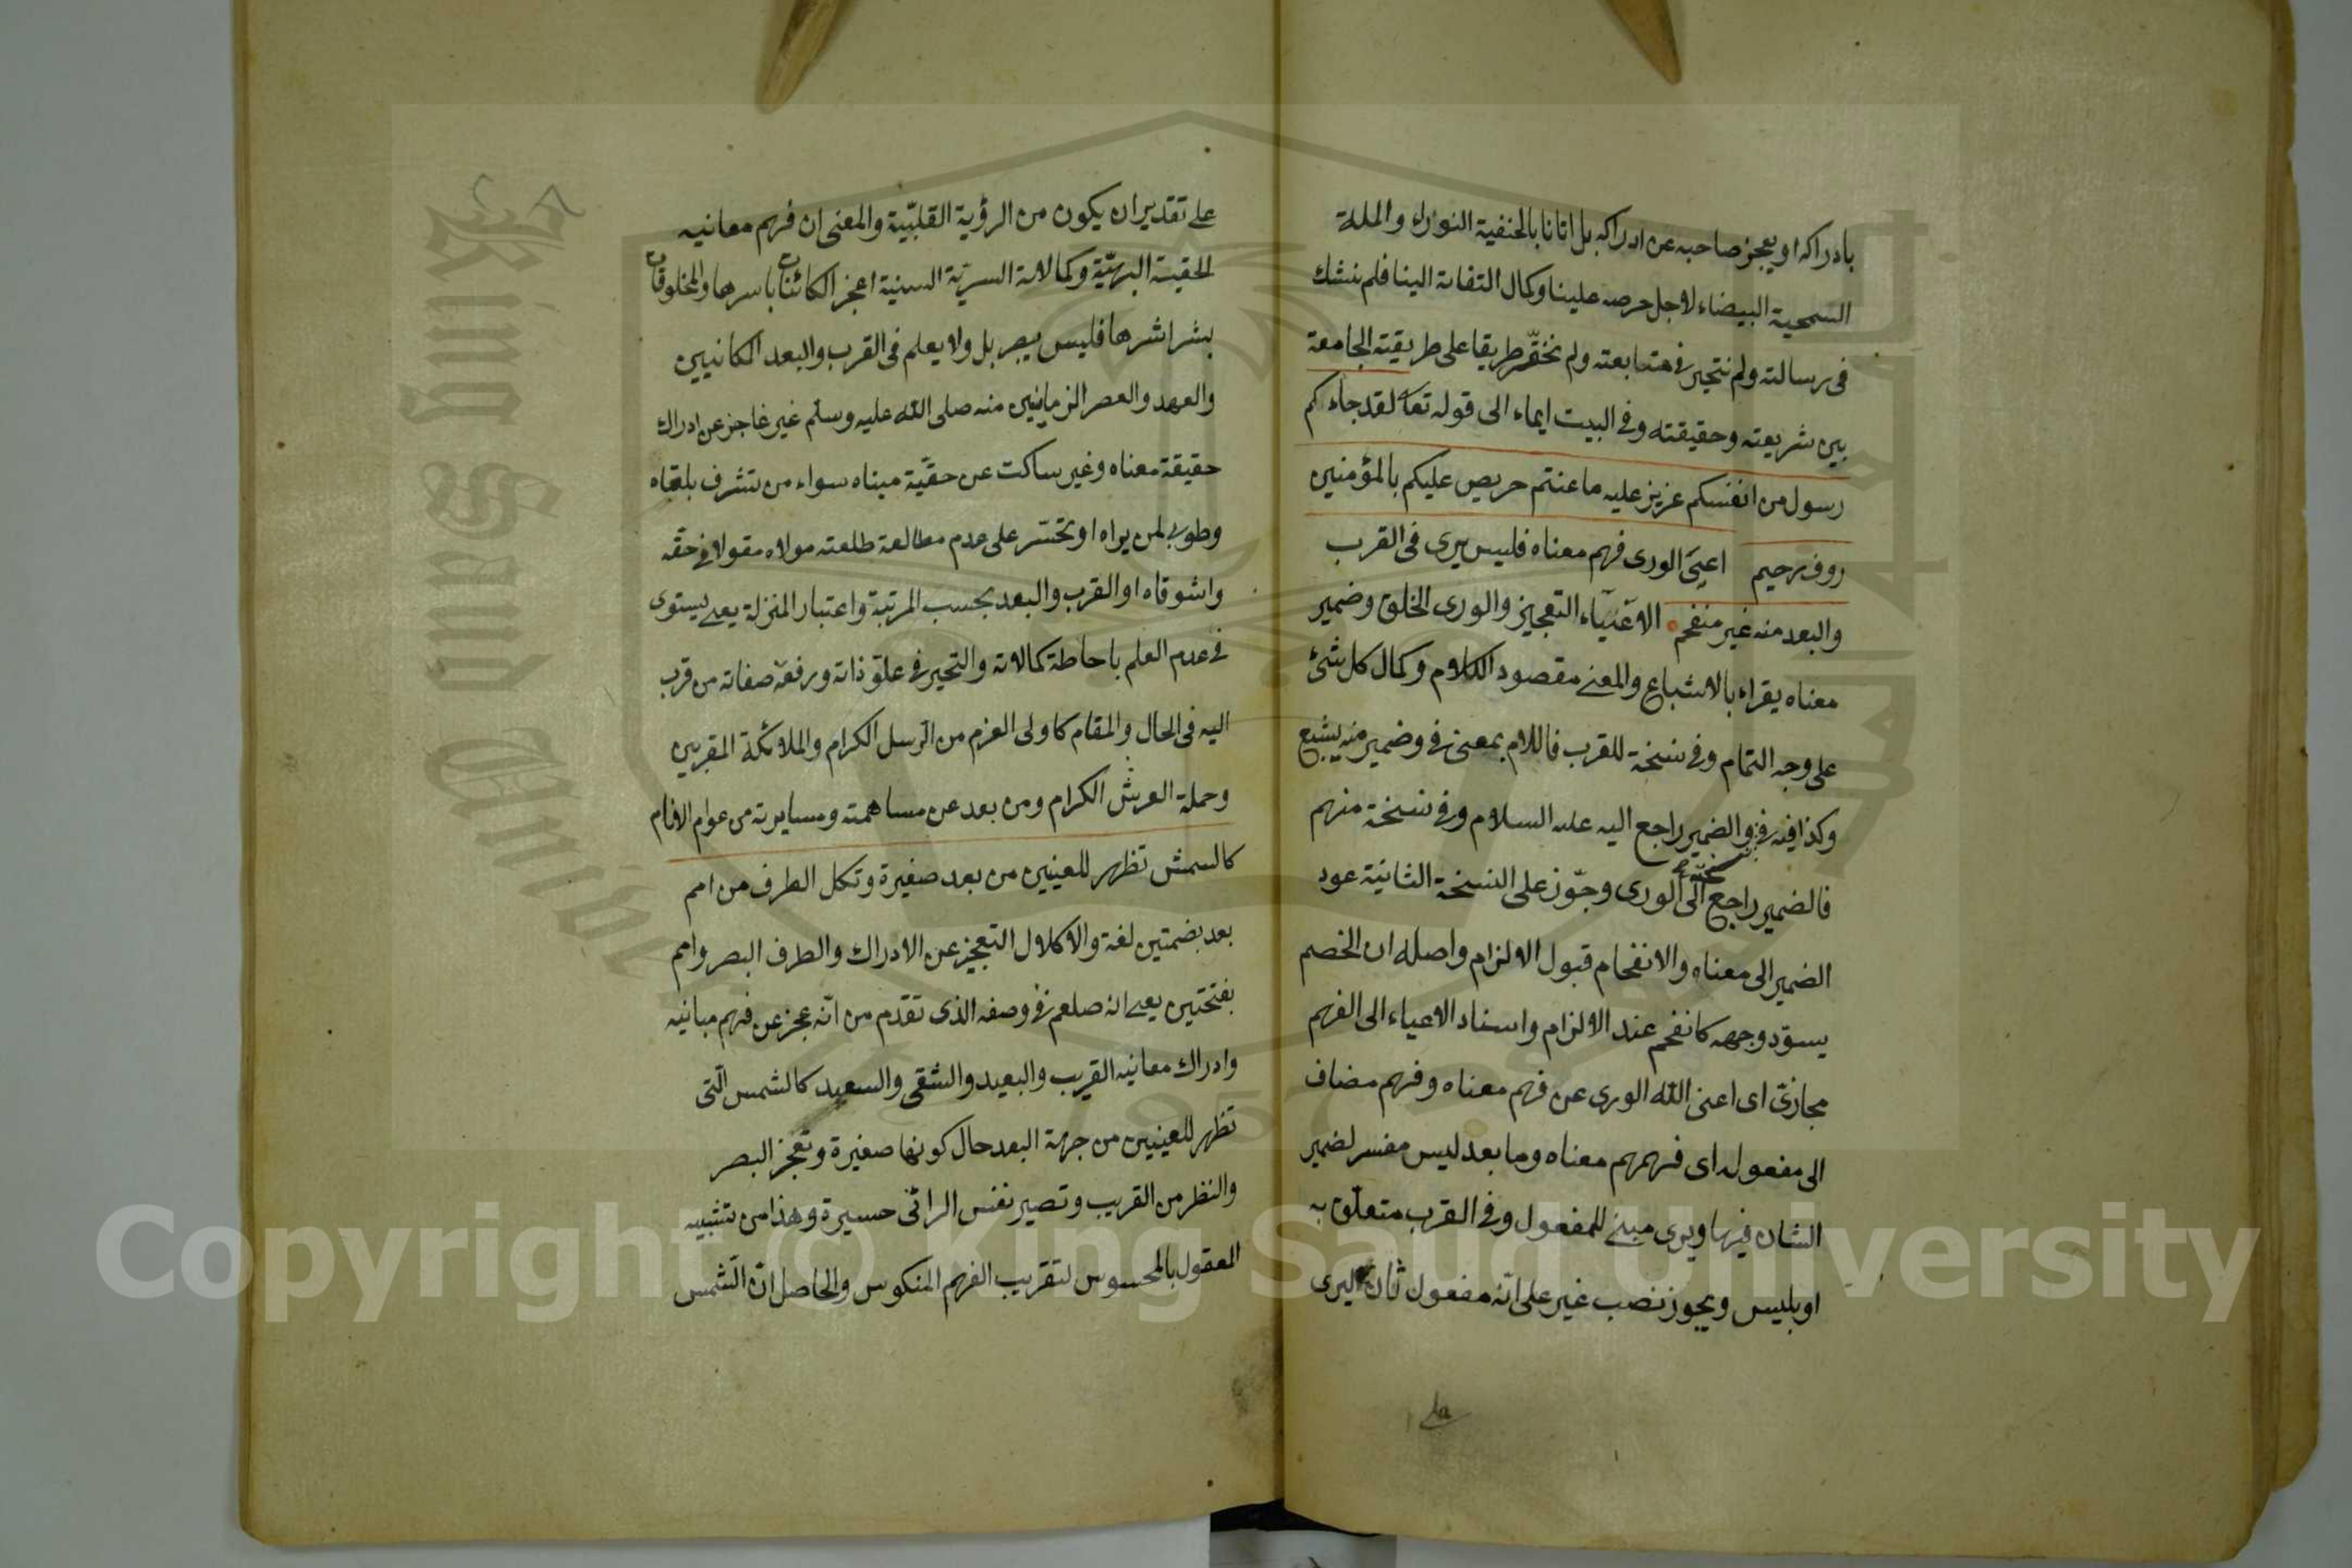 بادراكه او يعجز صاحبه عن ادراكه بل اتانا بالحنفية النوراء والملة
السمحية البيضاء لاجل حرصه علينا وكمال التفاته الينا فلم نشك
فى رسالته ولم نتحير فى متابعته ولم نختر طريقا على طريقته الجامعة
بين شريعته وحقيقته وفى البيت ايماء الى قوله تعا لقد جاءكم
رسول من انفسكم عزيز عليه ما عنتم حريص عليكم بالمؤمنين
روف رحيم اعيى الورى فهم معناه فليس يرى فى القرب
والبعد منه غير منفحم الاعياء التعجيز والورى الخلق وضمير
معناه يقراء بالاشباع والمعنى مقصود الكلام وكمال كل شئ
على وجه التمام وفى نسخة للقرب فاللام بمعنى فى وضمير منه يشبع
وكذا فيه فى والضمير راجع اليه عليه السلام وفى نسخة منهم
نسخة
فالضمير راجع الى الورى وجوّز على النسخة الثانية عود
الضمير الى معناه والانفحام قبول الالزام واصله ان الخصم
يسوّد وجهه كانفحم عند الالزام واسناد الاعياء الى الفهم
مجازىّ اى اعيى الله الورى عن فهم معناه وفهم مضاف
الى مفعوله اى فهمهم معناه وما بعد ليس مفسر لضمير
الشان فيها ويرى مبنى للمفعول وفى القرب متعلّق به
او بليس ويجوز نصب غير على انّه مفعول ثان ليرى
على
على تقدير ان يكون من الرؤية القلبيّة والمعنى ان فهم معانيه
الحقية البهيّة وكمالاته السريّة السنية اعجز الكائنات باسرها والمخلوقات
بشراشرها فليس يبصر بل ولا يعلم فى القرب والبعد المكانيين
والعهد والعصر الزمانيين منه صلى الله عليه وسلم غير عاجز عن ادراك
حقيقة معناه وغير ساكت عن حقيّة مبناه سواء من تشرف بلقاه
وطوبى لمن يراه او تحسّر على عدم مطالعة طلعته مولاه مقولا فى حقه
واشوقاه او القرب والبعد بحسب المرتبة واعتبار المنزلة يعنى يستوى
فى عدم العلم باحاطة كمالاته والتحير فى علوّ ذاته ورفعة صفاته من قرب
اليه فى الحال والمقام كاولى العزم من الرسل الكرام والملائكة المقربين
وحملة العرش الكرام ومن بعد عن مساهمته ومسايرته من عوام الانام
كالسمش تظهر للعينين من بعد صغيرة وتكل الطرف من امم
بعد بضمتين لغة والاكلال التعجيز عن الادراك والطرف البصر وامم
بفتحتين يعنى انه صلعم فى وصفه الذى تقدم من انّه عجز عن فهم مبانيه
وادراك معانيه القريب والبعيد والشقى والسعيد كالشمس الّتى
تظهر للعينين من جهة البعد حال كونها صغيرة وتعجز البصر
والنظر من القريب وتصير نفس الرائى حسيرة وهذا من تشبيه
المعقول بالمحسوس لتقريب الفهم المنكوس والحاصل انّ الشمس
King Saud University
1957
Copyright © King Saud University